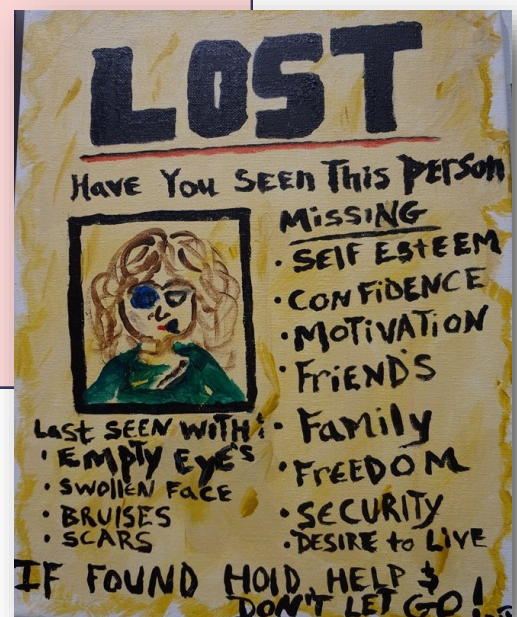 LOST
Have You SEEN This PERSON
MiSSiNG
• SElF EStEEM
• CONFiDENCE
• MOTiVATiON
• FriENDS
• Family
• FREEDOM
• SECURiTY
• DESIRE to LiVE
Last SEEN WiTH:
• EMPTY EyE'S
• SWOllEN FACE
• BRUISES
• SCARS
IF FOUND HOlD, HELP &
DON'T LET GO!